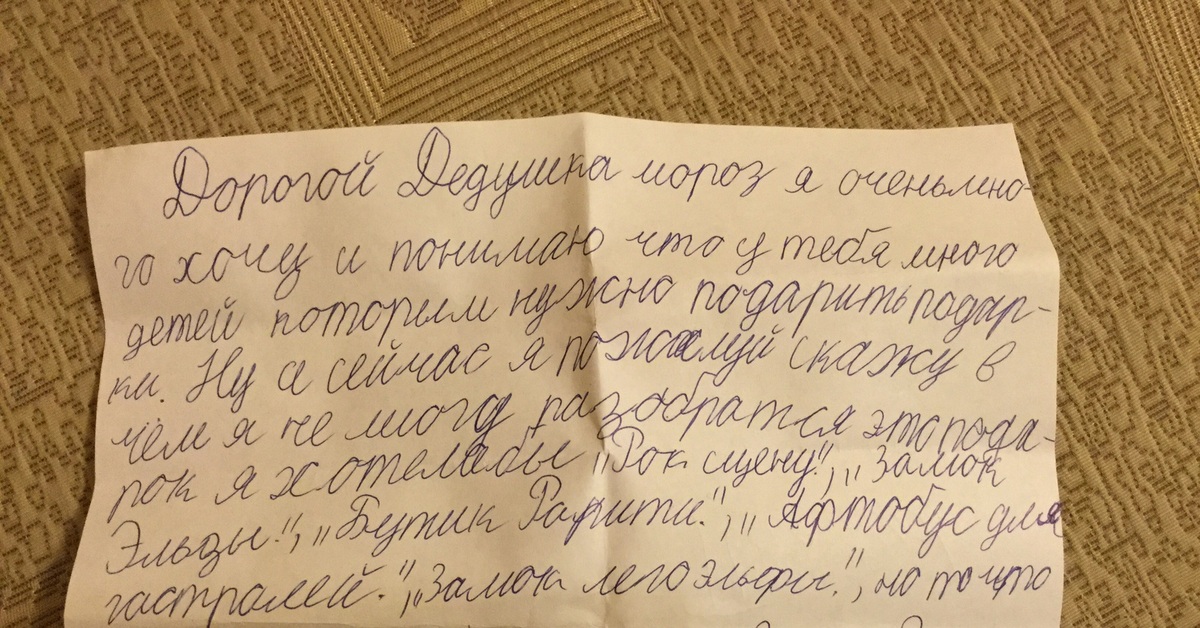 Дорогой Дедушка мороз я оченьмно-
го хочу и понимаю что у тебя много
детей которым нужно подарить подар-
ки. Ну а сейчас я пожалуй скажу в
чём я не могу разобратся это пода-
рок я хотела бы „Рок сцену.", „Замок
Эльзы.", „Бутик Рарити.", „Афтобус для
гастролей.", „Замок лего эльфы.", но то что